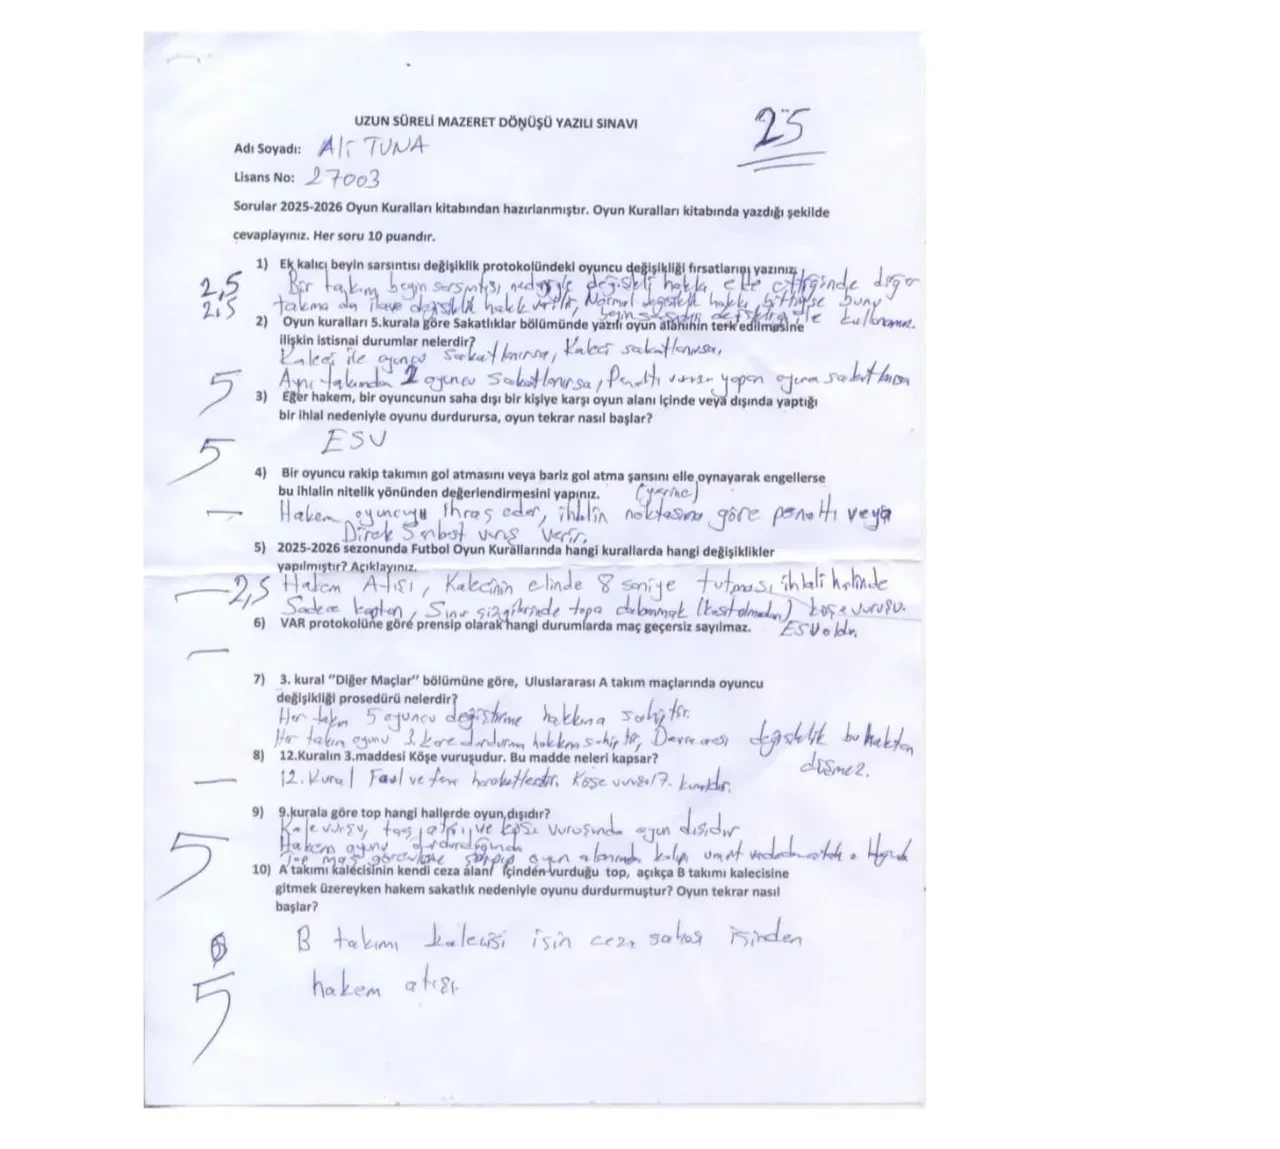 UZUN SÜRELİ MAZERET DÖNÜŞÜ YAZILI SINAVI
25
Adı Soyadı: Ali TUNA
Lisans No: 27003
Sorular 2025-2026 Oyun Kuralları kitabından hazırlanmıştır. Oyun Kuralları kitabında yazdığı şekilde
cevaplayınız. Her soru 10 puandır.
1) Ek kalıcı beyin sarsıntısı değişiklik protokolündeki oyuncu değişikliği fırsatlarını yazınız.
2,5 Bir takım beyin sarsıntısı nedeniyle değişiklik hakkı elde ettiğinde diğer
2,5 takıma da ilave değişiklik hakkı verilir, Normal değişiklik hakkı bittiyse bunu
beyin sarsıntısı değişikliği ile kullanamaz.
2) Oyun kuralları 5.kurala göre Sakatlıklar bölümünde yazılı oyun alanının terk edilmesine
ilişkin istisnai durumlar nelerdir?
Kaleci ile oyuncu sakatlanırsa, Kaleci sakatlanırsa,
5 Aynı takımdan 2 oyuncu sakatlanırsa, Penaltı vuruşu yapan oyuncu sakatlanırsa
3) Eğer hakem, bir oyuncunun saha dışı bir kişiye karşı oyun alanı içinde veya dışında yaptığı
bir ihlal nedeniyle oyunu durdurursa, oyun tekrar nasıl başlar?
5 ESV
4) Bir oyuncu rakip takımın gol atmasını veya bariz gol atma şansını elle oynayarak engellerse
bu ihlalin nitelik yönünden değerlendirmesini yapınız. (yerine)
— Hakem oyuncuyu ihraç eder, ihlalin noktasına göre penaltı veya
Direk Serbest vuruş verir.
5) 2025-2026 sezonunda Futbol Oyun Kurallarında hangi kurallarda hangi değişiklikler
yapılmıştır? Açıklayınız.
— 2,5 Hakem Atışı, Kalecinin elinde 8 saniye tutması ihlali halinde
Sadece kaptan, Sınır çizgilerinde topa dokunmak (kast olmadan) köşe vuruşu.
ESV oldu.
6) VAR protokolüne göre prensip olarak hangi durumlarda maç geçersiz sayılmaz.
—
7) 3. kural "Diğer Maçlar" bölümüne göre, Uluslararası A takım maçlarında oyuncu
değişikliği prosedürü nelerdir?
Her takım 5 oyuncu değiştirme hakkına sahiptir.
Her takım oyunu 3 kere durdurma hakkına sahiptir, Devre arası değişiklik bu haktan
düşmez.
8) 12.Kuralın 3.maddesi Köşe vuruşudur. Bu madde neleri kapsar?
— 12. Kural Faul ve fena hareketlerdir. Köşe vuruşu 17. kuraldır.
9) 9.kurala göre top hangi hallerde oyun dışıdır?
Kale vuruşu, taç atışı ve köşe vuruşunda oyun dışıdır
Hakem oyunu durdurduğunda
5 Top maç görevlisine çarpıp oyun alanında kalıp umut vadeden atak
10) A takımı kalecisinin kendi ceza alanı içinden vurduğu top, açıkça B takımı kalecisine
gitmek üzereyken hakem sakatlık nedeniyle oyunu durdurmuştur? Oyun tekrar nasıl
başlar?
B takımı kalecisi için ceza sahası içinden
5 hakem atışı.